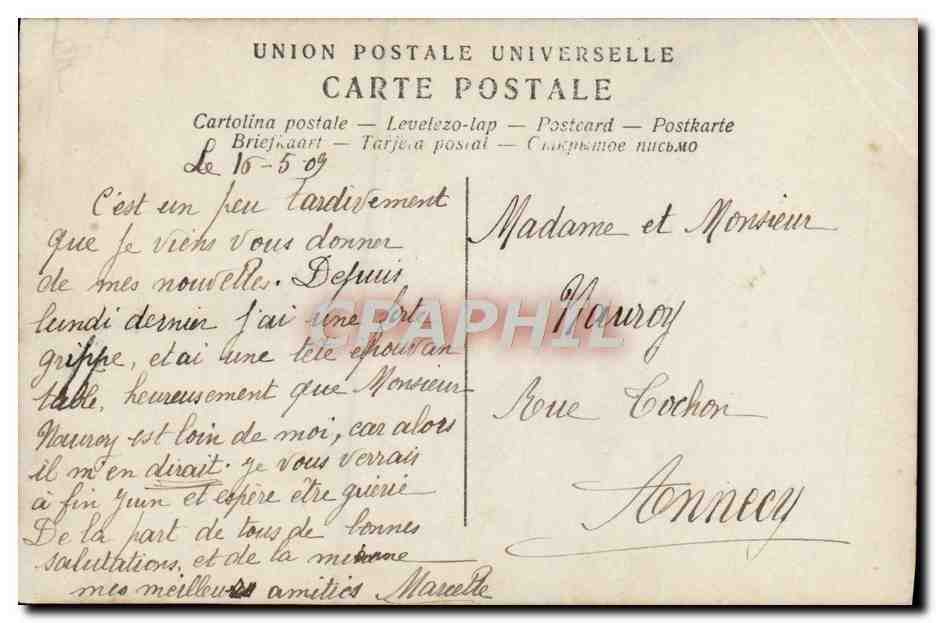 UNION POSTALE UNIVERSELLE
CARTE POSTALE
Cartolina postale — Levelezo-lap — Postcard — Postkarte
Briefkaart — Tarjeta postal — Открытое письмо
Le 16-5-09
C'est un peu tardivement
que je viens vous donner
de mes nouvelles. Depuis
lundi dernier j'ai une forte
grippe, et ai une tête épouvan
table, heureusement que Monsieur
Nauroy est loin de moi, car alors
il m'en dirait. Je vous verrais
à fin Juin et espère être guérie
De la part de tous de bonnes
salutations, et de la mienne
mes meilleures amitiés Marcelle
Madame et Monsieur
Nauroy
Rue Cochon
Annecy
CPAPHIL